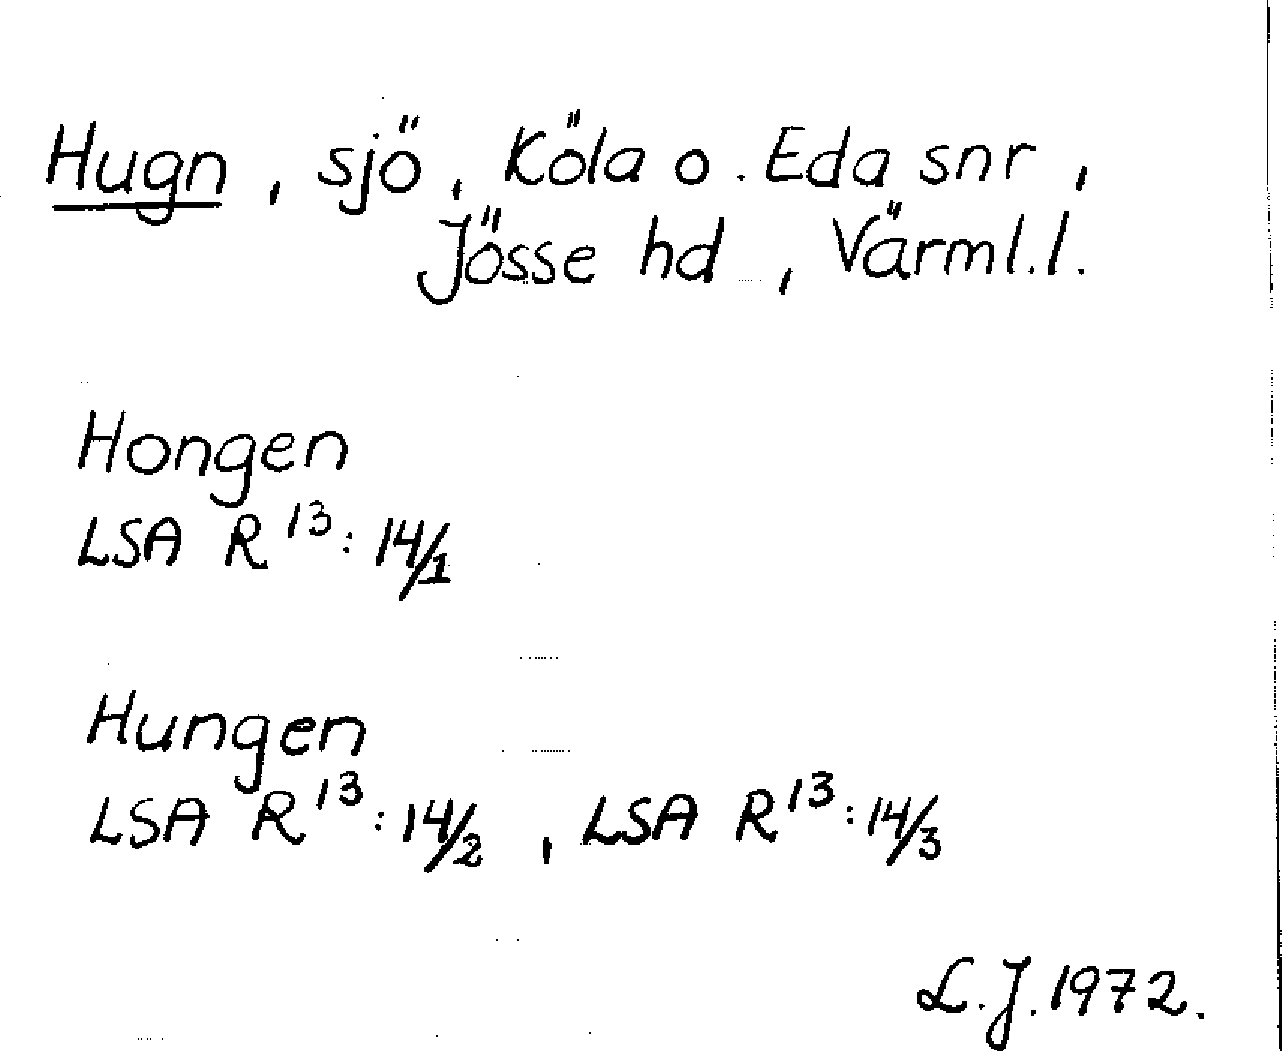 Hugn, sjö, Köla o. Eda snr,
Jösse hd, Värml.l.
Hongen
LSA R¹³: 14/1
Hungen
LSA R¹³: 14/2, LSA R¹³: 14/3
L.J. 1972.